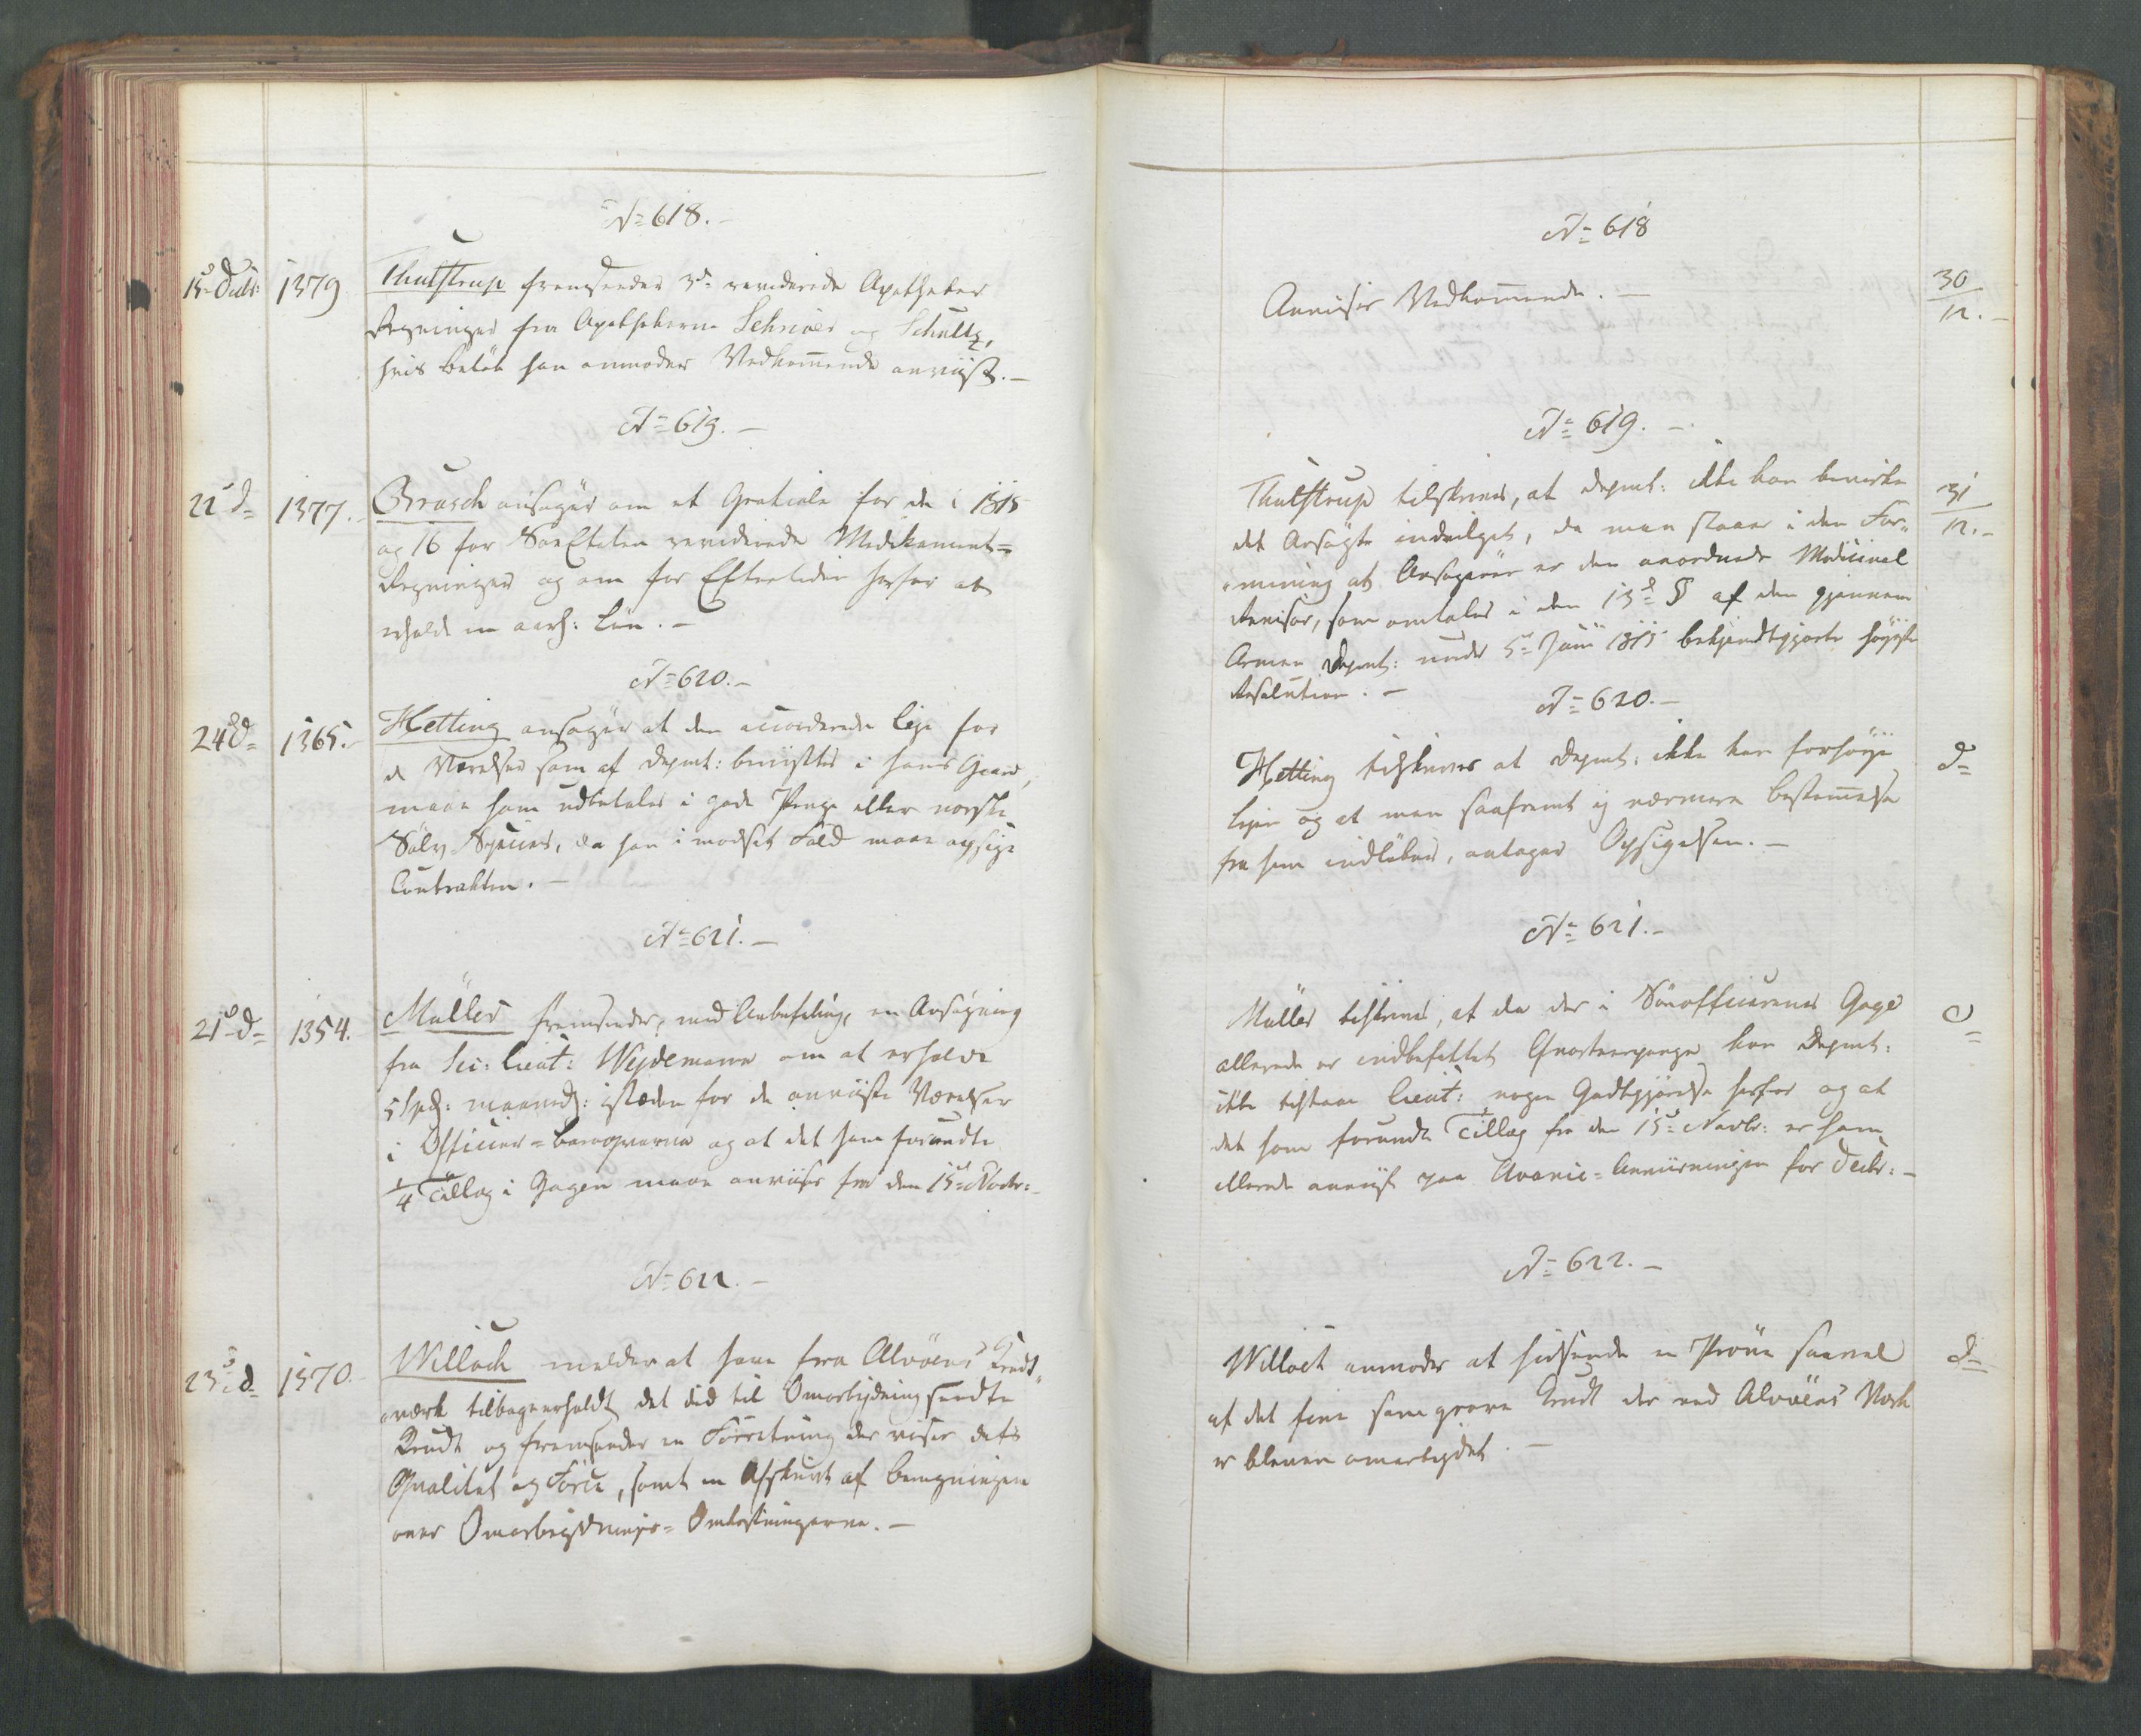 N= 618.-
15 Decbr: 1379 Thulstrup fremsender 3de reviderede Apotheker
Regninger fra Apothekerne Schriver og Schultz,
hvis Beløb han anmoder Vedkommende anviist.-
N= 619.-
22 d= 1377. Brasch ansøger om et Gratiale for de i 1815
og 16 for SøeEtaten reviderede Medikament=
Regninger og om for Eftertiden herfor at
erholde en aarl: Løn.-
N= 620.-
24 d= 1365. Hetting ansøger at den accorderede Leje for
de Værelser som af Depmt: benyttes i hans Gaard,
maae ham udbetales i gode Penge eller norske
Sølv Species, da han i modsat Fald maae opsige
Contrakten.-
N= 621.-
21 d= 1354. Müller fremsender, med Anbefaling, en Ansøgning
fra Sec: Lieut: Weydemann om at erholde
5 Spd: maanedl: istæden for de anviiste Værelser
i Officier=Baraquerne og at det ham forundte
1/4 Tillæg i Gagen maae anvises fra den 15 Novbr:-
N= 622.-
23 d= 1370. Willoch melder at have fra Alvøens Krudt
værk tilbageerholdt det did til Omarbejdning sendte
Krudt og fremsender en Forretning der viser dets
Qvalitet og Force, samt en Afskrivt af Beregningen
over Omarbejdnings=Omkostningerne.-
N= 618
Anvises Vedkommende.- 30/12.-
N= 619.-
Thulstrup tilskrives, at Depmt: ikke kan bevirke 31/12.-
det Ansøgte indvilget, da man staaer i den For-
mening at Ansøgeren er den anordnede Medicinal
Revisor, som omtales i den 13de § af den gjennem
Armee Depmt: under 5 Juni 1815 bekjendtgjorte højeste
Resolution.-
N= 620.-
Hetting tilskrives at Depmt: ikke kan forhøje d=
Lejen og at man saafremt ej nærmere Bestemmelse
fra ham indløber, antager Opsigelsen.-
N= 621.-
Müller tilskrives, at da der i Søeofficerernes Gage d=
allerede er indbefattet Qvarteerpenge kan Depmt:
ikke tilstaae Lieut: nogen Godtgjørelse herfor og at
det ham forundte Tillæg fra den 15 Novbr: er ham
allerede anviist paa Avance=Anviisningen for Decbr:-
N= 622.-
Willoch anmodes at hidsende en Prøve saavel d=
af det fine som grove Krudt der ved Alvøens Værk
er bleven omarbejdet.-